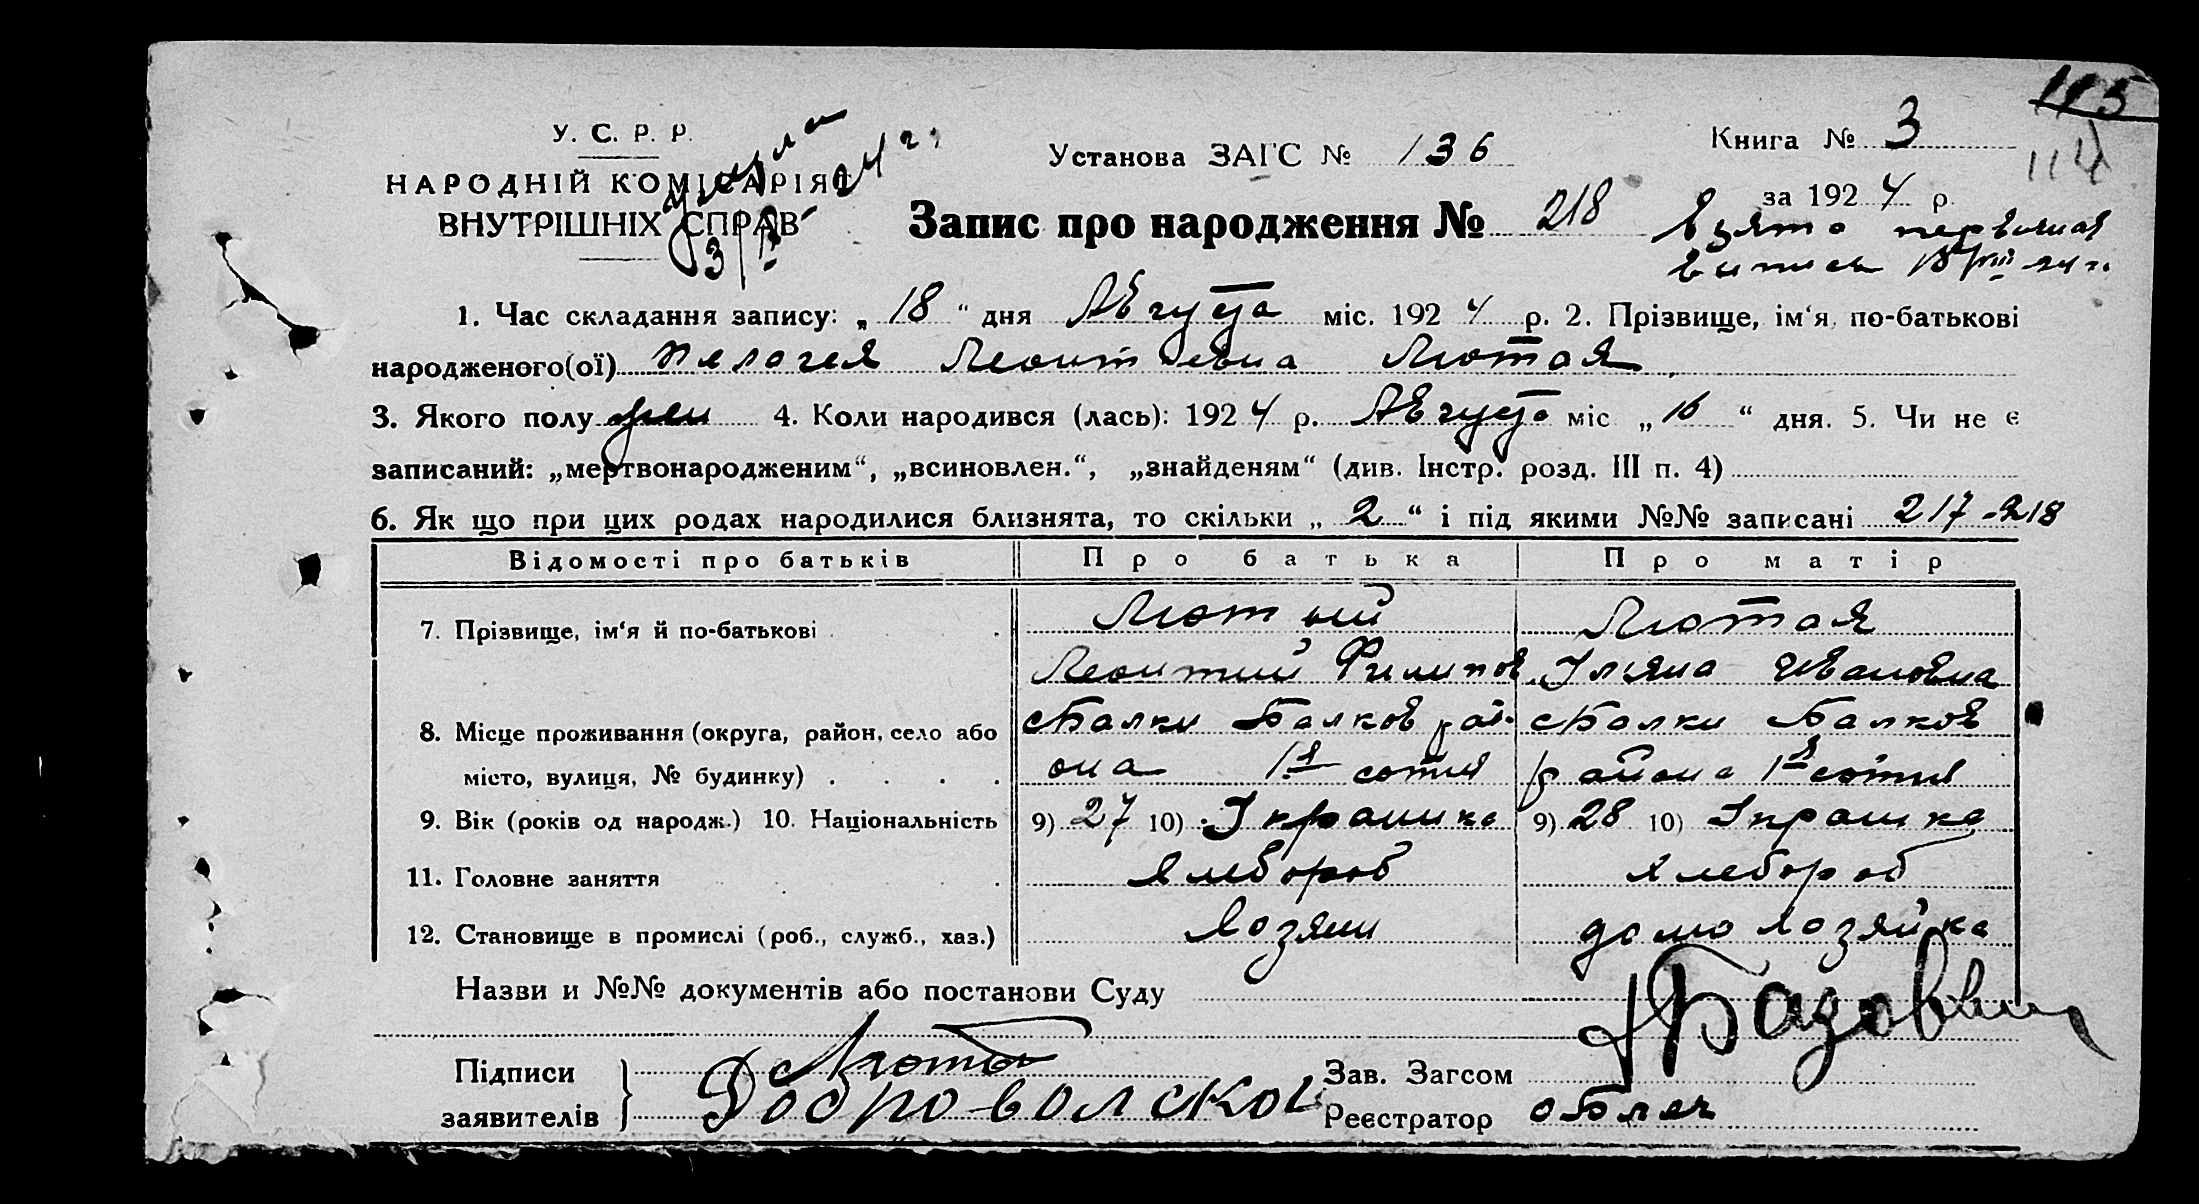 115
114
У. С. Р. Р.
НАРОДНІЙ КОМІСАРІЯТ
ВНУТРІШНІХ СПРАВ
Умерла
3/ 24 г.
Установа ЗАГС № 136
Книга № 3
за 1924 р.
Запис про народження № 218
Взята первичная
выпись 18/VIII 24 г.
1. Час складання запису: „ 18 “ дня Августа міс. 1924 р. 2. Прізвище, ім‘я, по-батькові
народженого(ої) Пелагея Леонтьевна Лютая
3. Якого полу жен 4. Коли народився (лась): 1924 р. Августа міс „ 16 “ дня. 5. Чи не є
записаний: „мертвонародженим“, „всиновлен.“, „знайденям“ (див. Інстр. розд. III п. 4)
6. Як що при цих родах народилися близнята, то скільки „ 2 “ і під якими №№ записані 217-218
Відомості про батьків Про батька Про матір
7. Прізвище, ім‘я й по-батькові Лютый Лютая
Леонтий Филипов Ивановна
8. Місце проживання (округа, район, село або сБалки Балков рай- сБалки Балков
місто, вулиця, № будинку) она 1я сотня района 1я сотня
9. Вік (років од народж.) 10. Національність 9) 27 10) Украинка 9) 28 10) Украинка
11. Головне заняття Хлебороб Хлебороб
12. Становище в промислі (роб., служб., хаз.) Хозяин домохозяйка
Назви и №№ документів або постанови Суду
Підписи
заявителів
Лютый
Добровольской
Зав. Загсом
Реєстратор